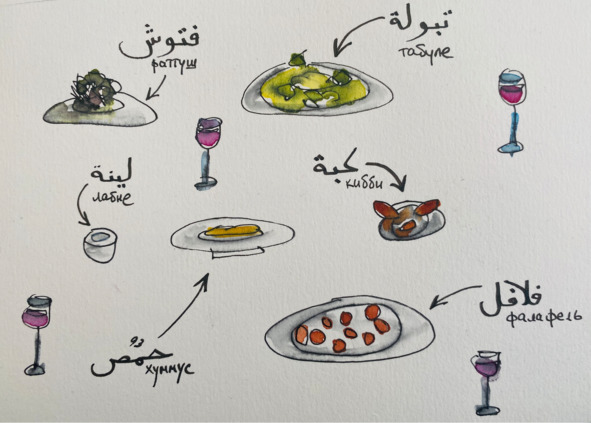 فتوش
фаттуш
تبولة
табуле
لبنة
лабне
كبة
кибби
حمّص
хуммус
فلافل
фалафель